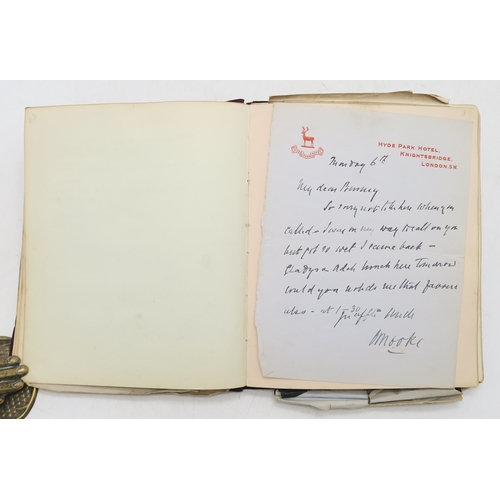 HYDE PARK HOTEL,
KNIGHTSBRIDGE,
LONDON. S.W.
Monday 6th
My dear
So sorry not to be here when you
called - I was on my way to call on you
but got so wet I came back -
Gladys & lunch here Tomorrow
could you not do me that favour
also - at 1.30
Brooke